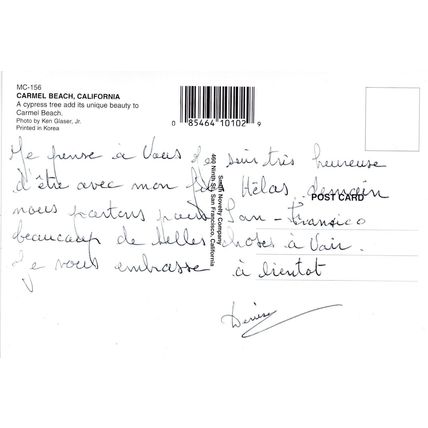 MC-156
CARMEL BEACH, CALIFORNIA
A cypress tree add its unique beauty to
Carmel Beach.
Photo by Ken Glaser, Jr.
Printed in Korea
0 85464 10102 9
Smith Novelty Company
460 Ninth St., San Francisco, California
POST CARD
Je pense à Vous Je suis très heureuse
d'être avec mon fils Hélas demain
nous partons pour San-Fransico
beaucoup de belles choses à Voir.
Je vous embrasse à bientot
Denise